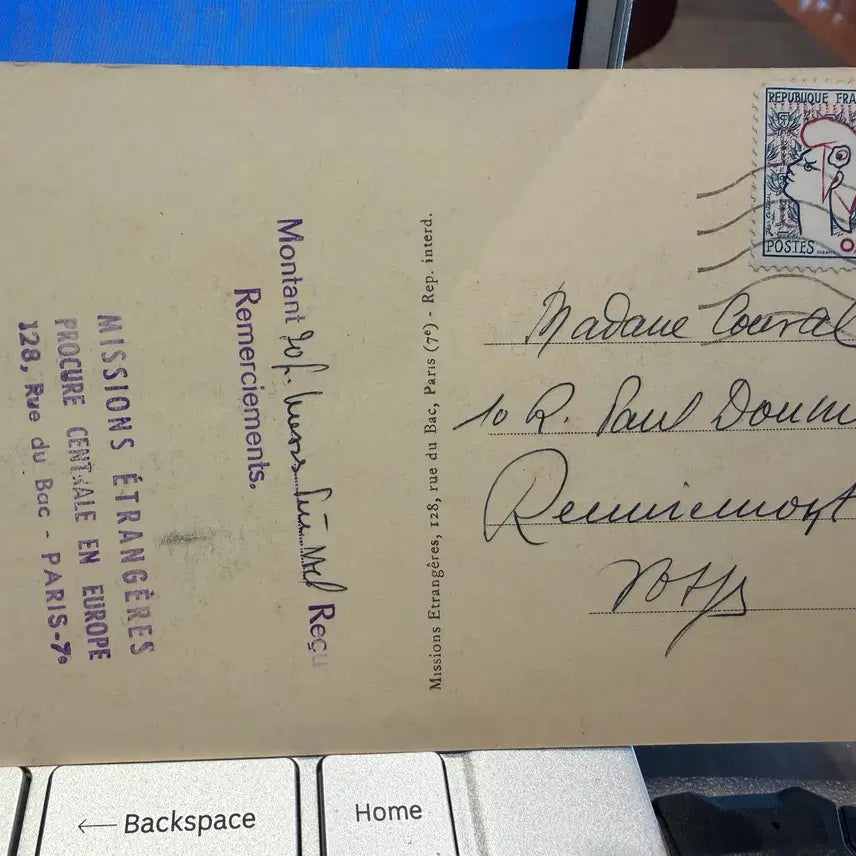 REPUBLIQUE FRA
POSTES
Madame
10 R. Paul Doum
Remiremont
Missions Etrangères, 128, rue du Bac, Paris (7e) - Rep. interd.
Montant 20 f. Reçu
Remerciements.
MISSIONS ÉTRANGÈRES
PROCURE CENTRALE EN EUROPE
128, Rue du Bac - PARIS-7e
Backspace
Home